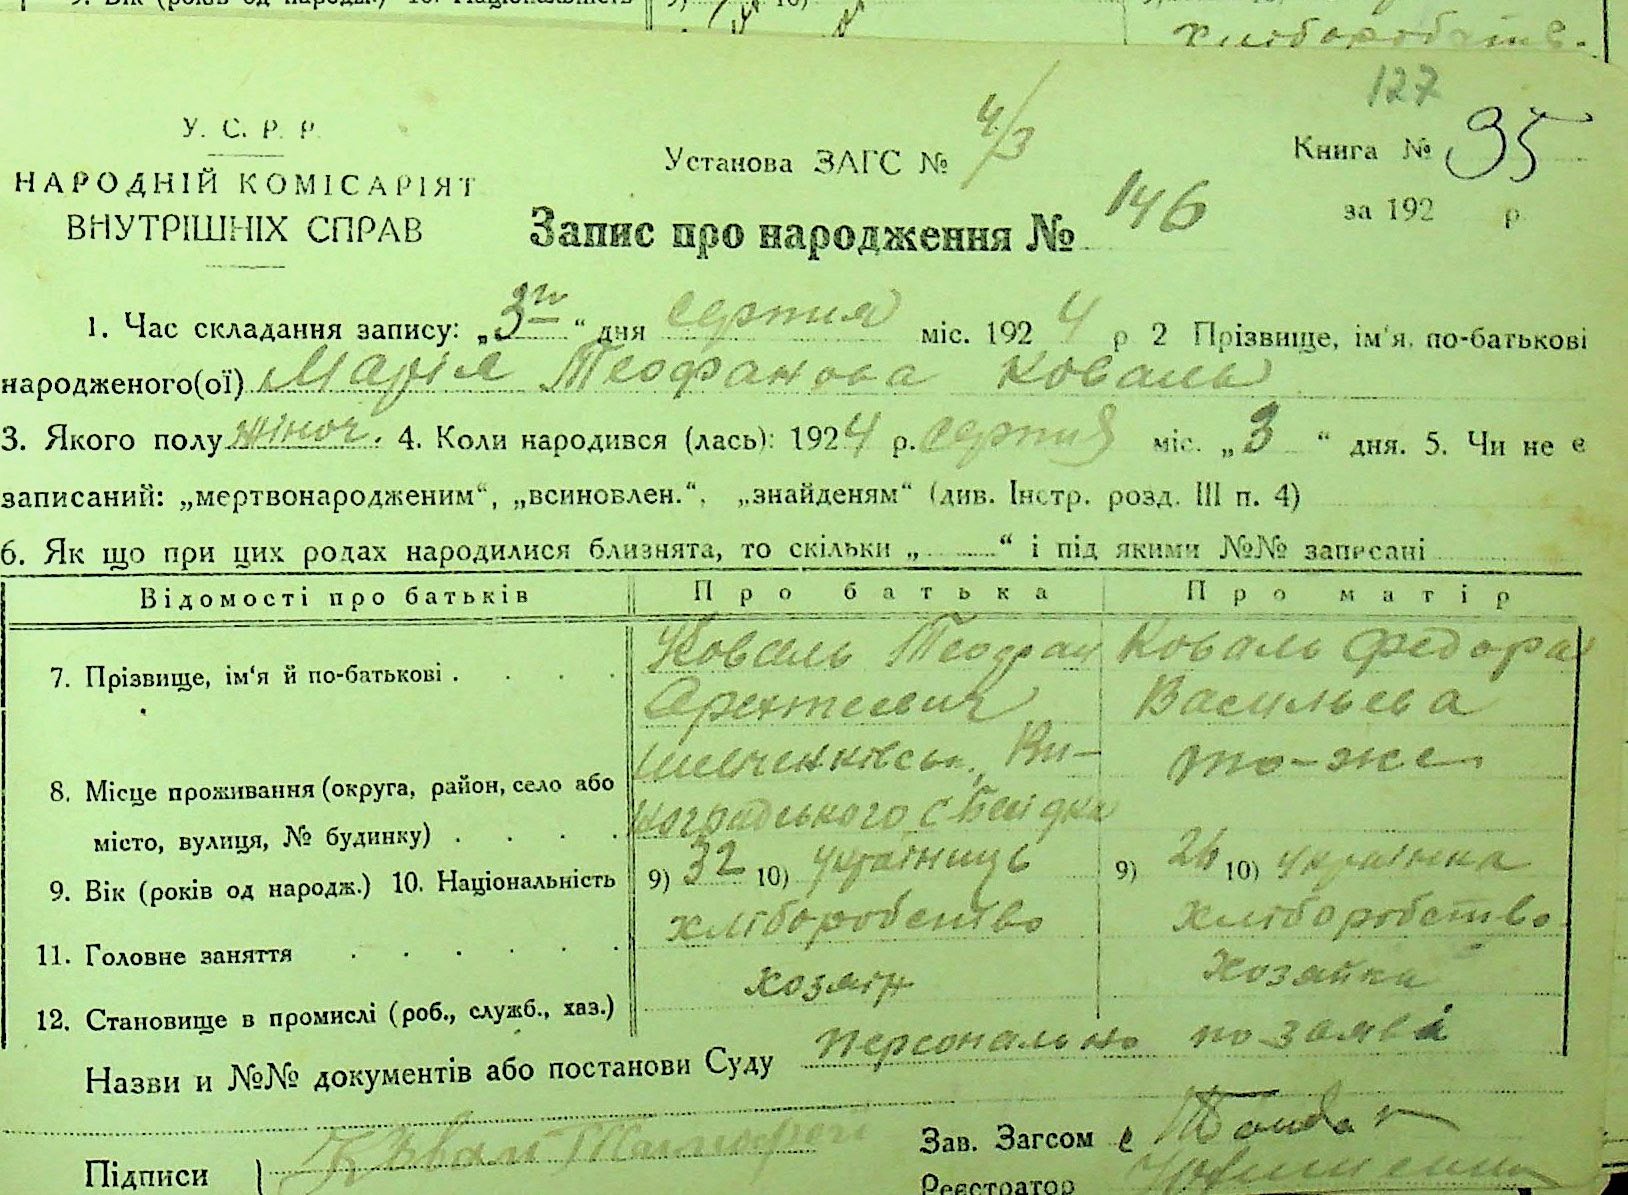 9. Вік (років од народж.) 10. Національність 9) 10)
хліборобство.
127
У. С. Р. Р.
НАРОДНІЙ КОМІСАРІЯТ
ВНУТРІШНІХ СПРАВ
Установа ЗАГС № 4/3
Книга № 35
за 192 р.
Запис про народження № 146
1. Час складання запису: „3го“ дня серпня міс. 1924 р 2 Прізвище, ім'я, по-батькові
народженого(ої) Марія Теофанова Коваль
3. Якого полу жіноч. 4. Коли народився (лась): 1924 р. серпня міс. „3“ дня. 5. Чи не є
записаний: „мертвонародженим“, „всиновлен.“, „знайденям“ (див. Інстр. розд. III п. 4)
6. Як що при цих родах народилися близнята, то скільки „ “ і під якими №№ записані
Відомості про батьків Про батька Про матір
7. Прізвище, ім'я й по-батькові . . . . Коваль Теофан Коваль Федора
Васильева
8. Місце проживання (округа, район, село або Шевченківськ. Ви- то-же
місто, вулиця, № будинку) . . . . ноградського с
9. Вік (років од народж.) 10. Національність 9) 32 10) українець 9) 26 10) українка
11. Головне заняття . . . . . . хліборобство хліборобство
12. Становище в промислі (роб., служб., хаз.) хозяїн хозяйка
Назви и №№ документів або постанови Суду персонально по заяві
Підписи Коваль
Зав. Загсом
Реєстратор